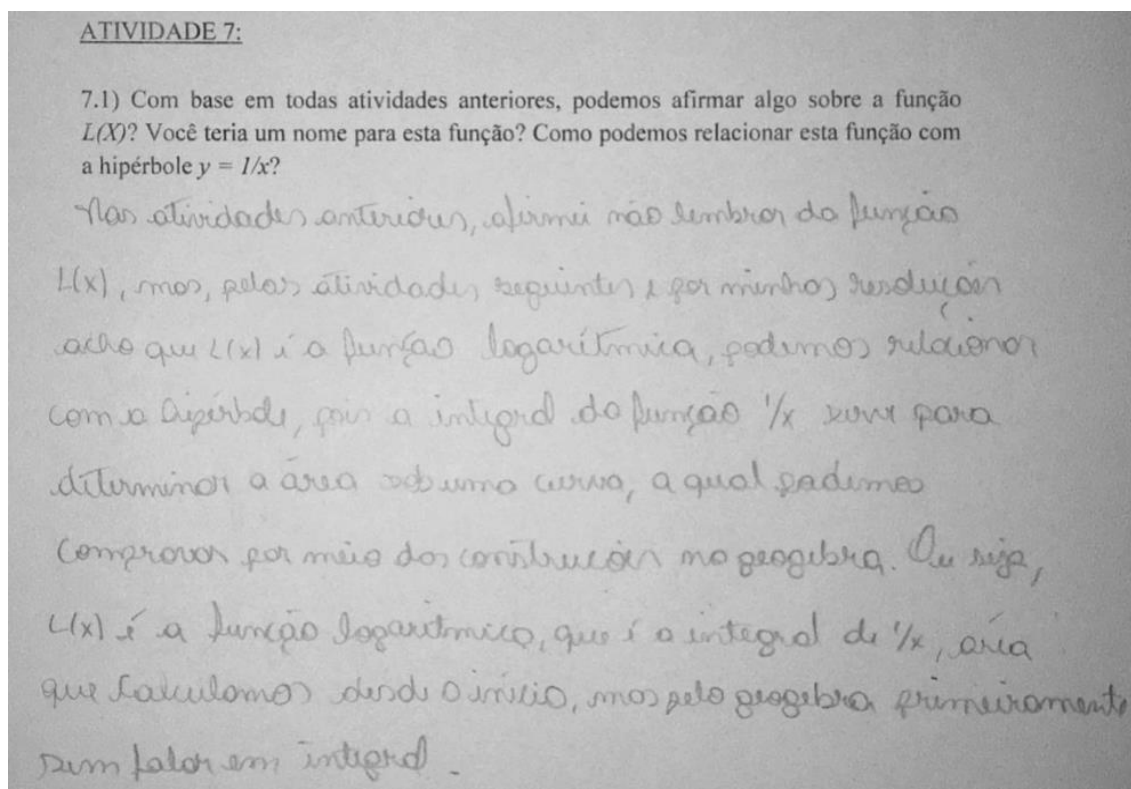 ATIVIDADE 7:
7.1) Com base em todas atividades anteriores, podemos afirmar algo sobre a função
L(X)? Você teria um nome para esta função? Como podemos relacionar esta função com
a hipérbole y = 1/x?
Nas atividades anteriores, afirmei não lembrar da função
L(x), mas, pelas atividades seguintes e por minhas resoluções
acho que L(x) é a função logarítmica, podemos relacionar
com a hipérbole, pois a integral da função 1/x serve para
determinar a área sob uma curva, a qual podemos
comprovar por meio das construções no geogebra. Ou seja,
L(x) é a função logaritmica, que é a integral de 1/x, área
que calculamos desde o início, mas pelo geogebra primeiramente
sem falar em integral.